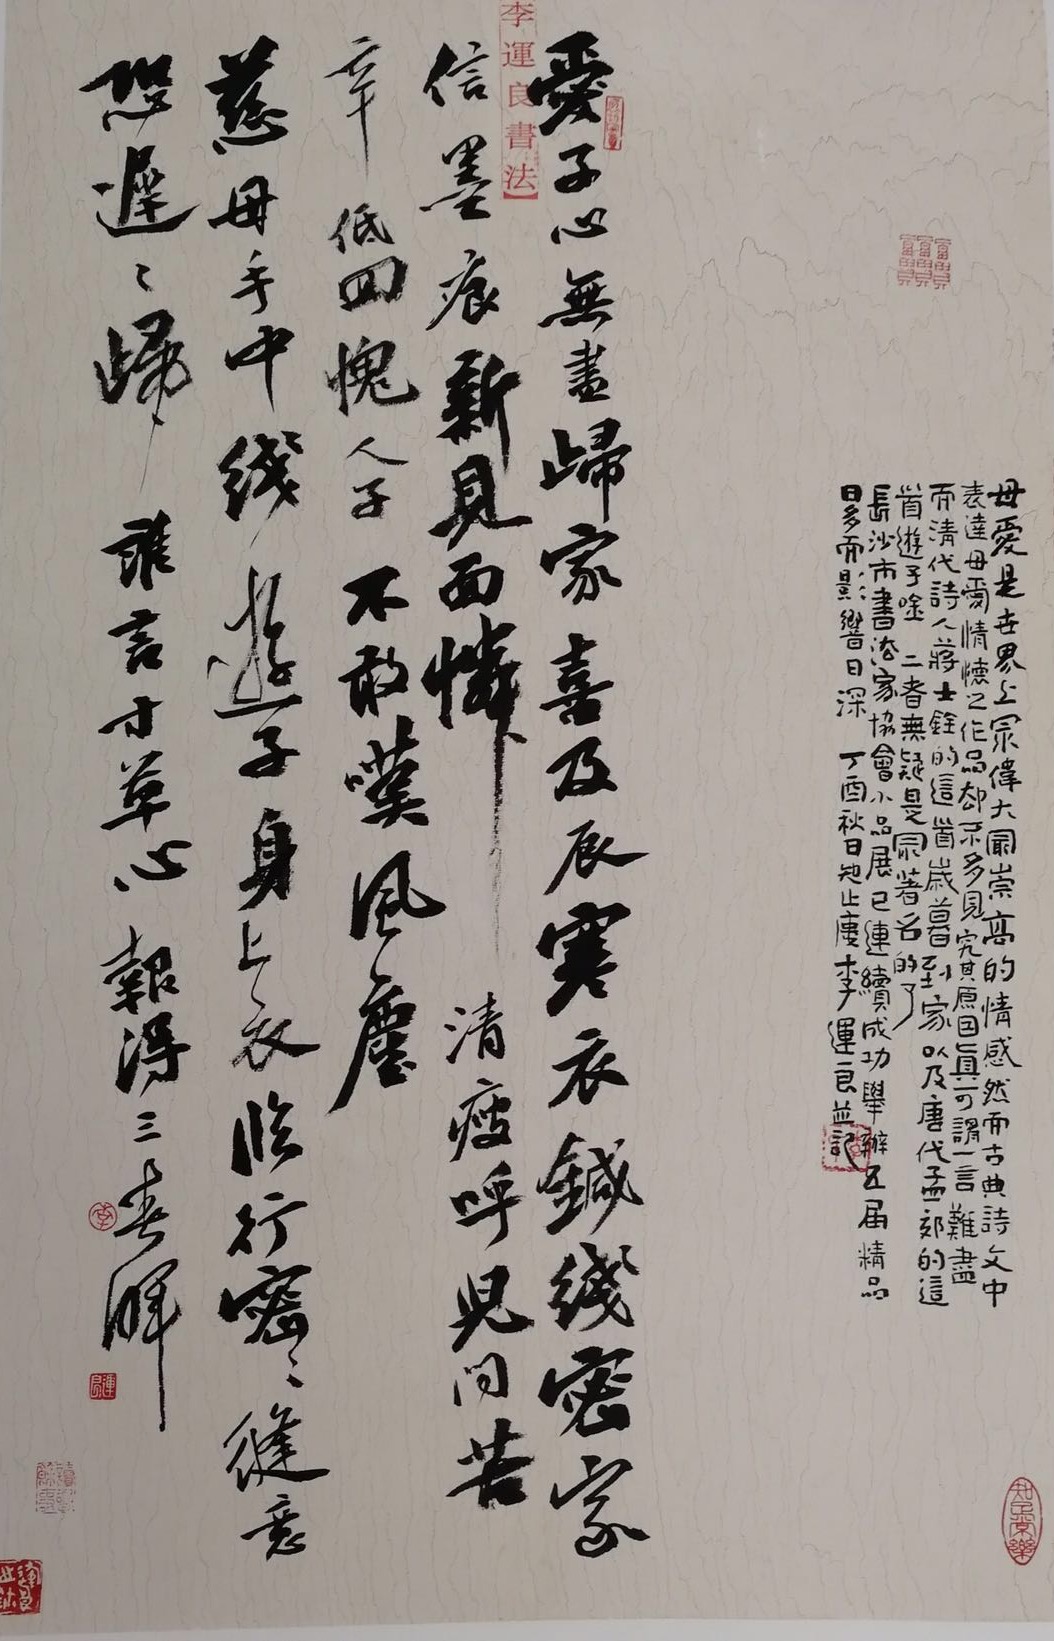 母愛是世界上宗偉大宗崇高的情感然而古典詩文中
表達母愛情懷之作品却不多見究其原因真可謂一言難盡
而清代詩人蔣士銓的這首歲暮到家以及唐代孟郊的這
首遊子唫二者無疑是宗著名的了
長沙市書法家協會小品展已連續成功舉辦五届精品
日多而影響日深 丁酉秋日 李運良並記
李運良書法
愛子心無盡歸家喜及辰寒衣鍼线密家
信墨痕新見面憐 清瘦呼兒问苦
辛 低回愧人子不敢嘆風塵
慈母手中线遊子身上衣临行密々縫意
恐遲々歸 誰言寸草心報得三春暉
知足常樂